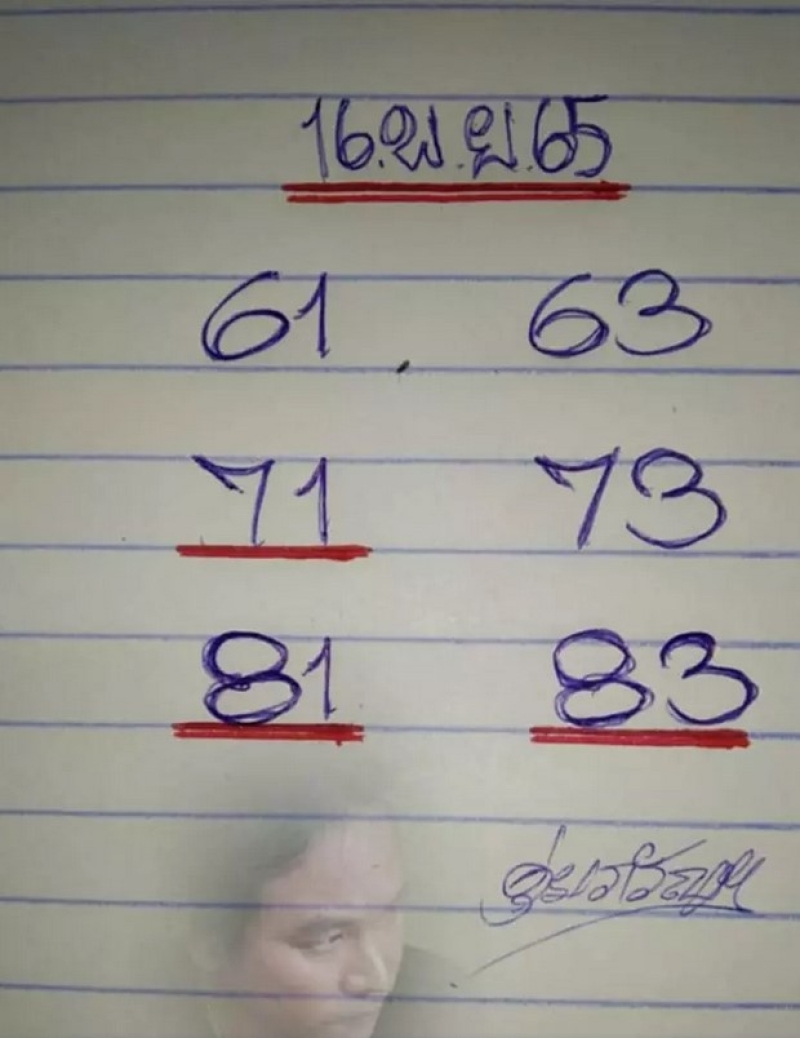 16.พ.ย.65
61 63
71 73
81 83